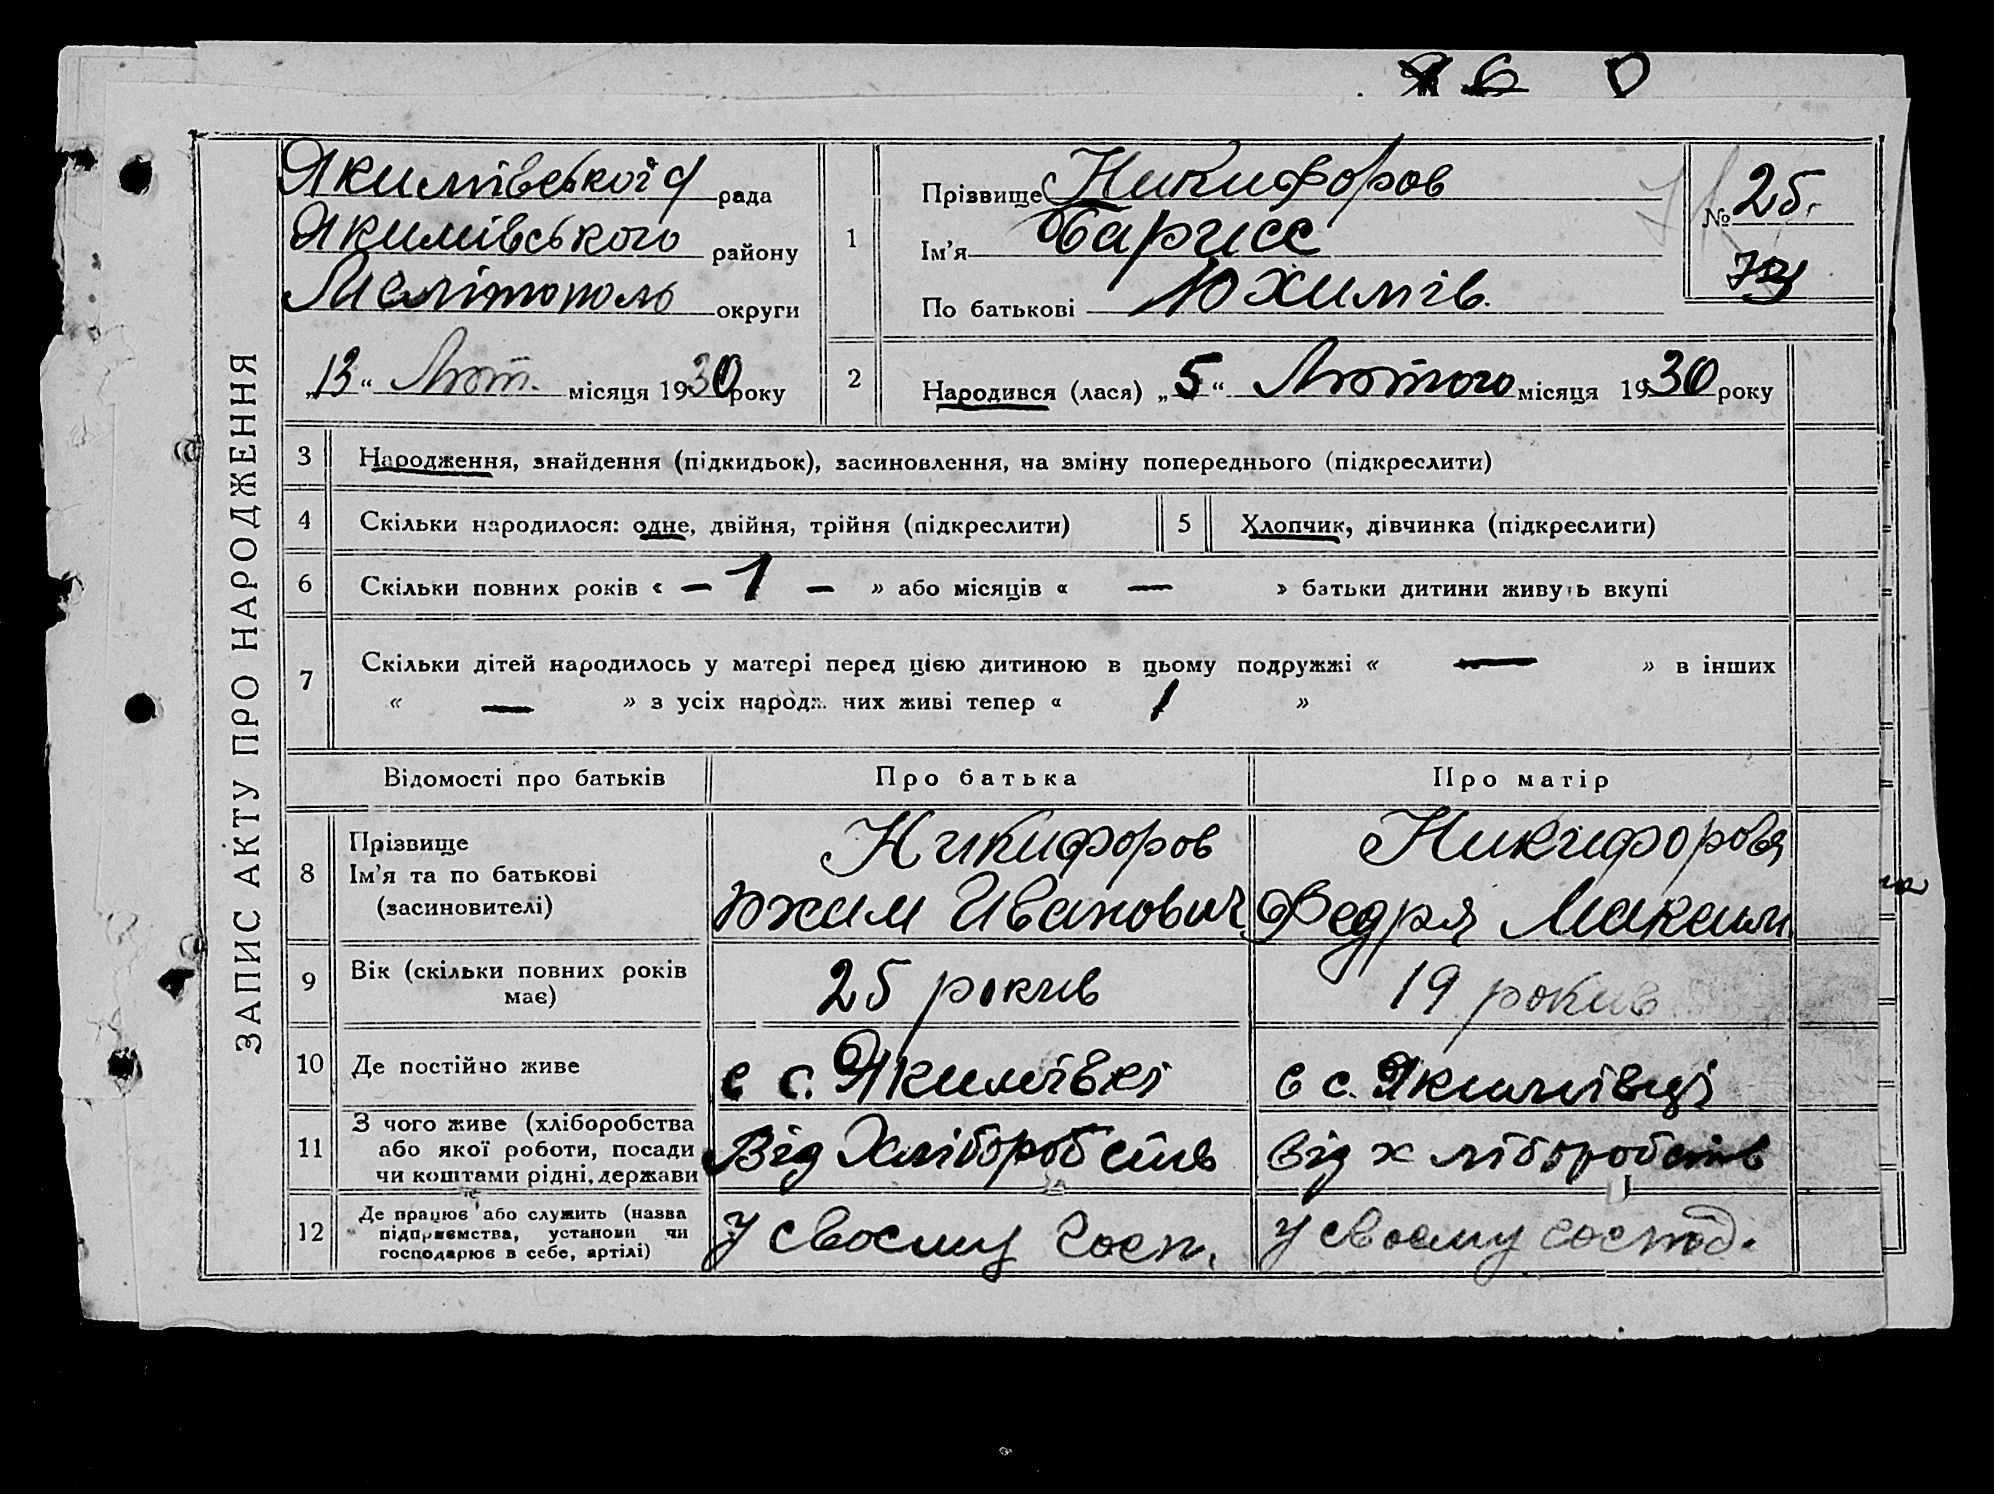 ЗАПИС АКТУ ПРО НАРОДЖЕННЯ
Якимівської рада
Якимівського району
Мелітополь округи
„13“ Лют. місяця 1930 року
1
Прізвище Никифоров
Ім'я Барисс
По батькові Юхимів.
№ 25.
2
Народився (лася) „5“ Лютого місяця 1930 року
3 Народження, знайдення (підкидьок), засиновлення, на зміну попереднього (підкреслити)
4 Скільки народилося: одне, двійня, трійня (підкреслити)
5 Хлопчик, дівчинка (підкреслити)
6 Скільки повних років « — 1 — » або місяців « — » батьки дитини живуть вкупі
7 Скільки дітей народилось у матері перед цією дитиною в цьому подружжі « — » в інших
« — » з усіх народж. них живі тепер « 1 »
Відомості про батьків
Про батька
Про матір
8
Прізвище
Ім'я та по батькові
(засиновителі)
Никифоров
Юхим Иванович
Никифорова
Федря Максим.
9
Вік (скільки повних років
має)
25 рокив
19 рокив
10 Де постійно живе
в с. Якимівкі
в с. Якимівці
11
З чого живе (хліборобства
або якої роботи, посади
чи коштами рідні, держави
Від Хліборобств
від хліборобств
12
Де працює або служить (назва
підприємства, установи чи
господарює в себе, артілі)
У своєму Госп.
у своєму господ.